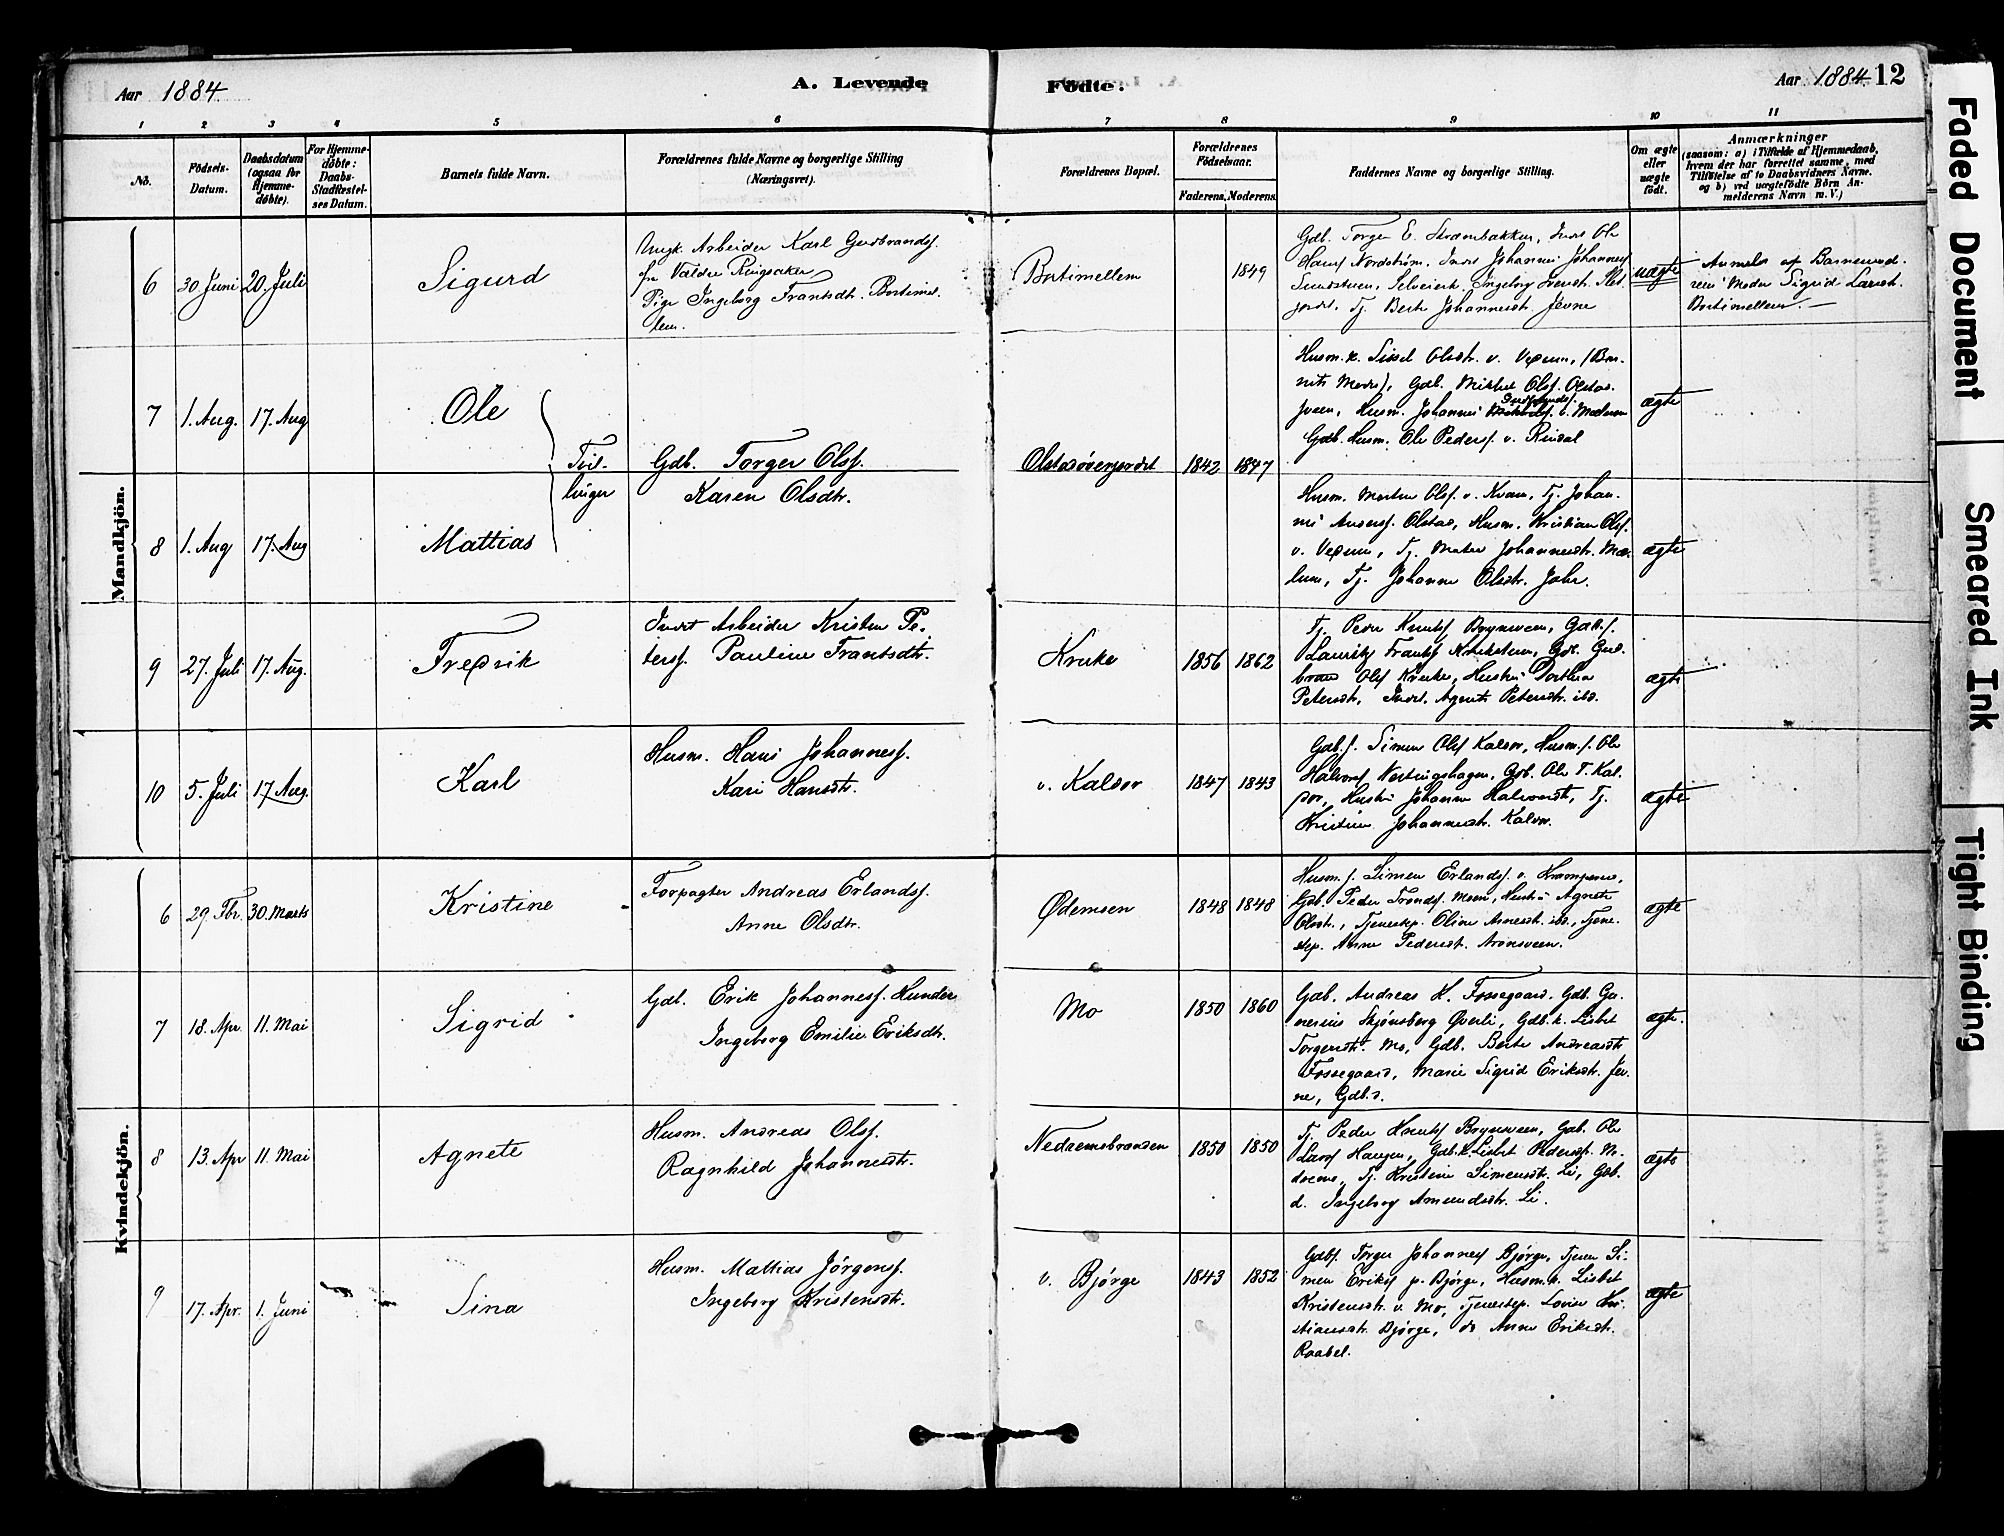 Aar 1884.
A. Levende
Fødte.
Aar 1884 12
1 2 3 4 5 6 7 8 9 10 11
No.
Fødsels-
Datum.
Daabsdatum
(ogsaa for
Hjemme-
døbte).
For Hjemme-
døbte:
Daabs-
Stadfæstel-
ses Datum.
Barnets fulde Navn.
Forældrenes fulde Navne og borgerlige Stilling
(Næringsvei).
Forældrenes Bopæl.
Forældrenes
Fødselsaar.
Faderens. Moderens.
Faddernes Navne og borgerlige Stilling.
Om ægte
eller
uægte
født.
Anmærkninger
(saasom: a) i Tilfælde af Hjemmedaab,
hvem der har forrettet samme, med
Tilføielse af to Daabsvidners Navne.
og b) ved uægtefødte Børn An-
melderens Navn m. V.)
Mandkjön.
6 30. Juni 20. Juli
Sigurd
Ungk. Arbeider Karl Gudbrandsf.
fra Valdre Ringsaker
Pige Ingeborg Frantsdt. Bortimel-
lem.
Bortimellem
1849
Gdb. Torger E. Strømbakken, Inds. Ole
Hansf Nordstrøm, Inds. Johannes Johannesf
Ingeborg
Tj. Berte Johannesdt. Jevne
uægte
Anmeldt af Barnets
Moder Sigrid Larsdt.
Bortimellem
7 1. Aug. 17. Aug
Ole
Tvil-
linger
Gdb. Torger Olsf.
Karen Olsdtr.
Olstadøverjordet 1842 1847
Husm.k. Sissel Olsdtr. v. Vedum, (Bar-
nets Moder), Gdb. Mikkel Olsf. Olstad-
sveen, Husm. Johannes Gudbrandsf. v. Mælum
Gdb. Husm. Ole Pedersf. v. Rindal
ægte
8 1. Aug 17. Aug
Mattias
Husm. Morten Olsf. v. Kvam, Tj. Johan-
nes Andersf. Olstad, Husm. Kristian Olsf.
v. Vedum, Tj. Johannesdt. Mæ-
lum, Tj. Johanne Olsdtr. Jahr.
ægte
9 27. Juli 17. Aug.
Fredrik
Inds. Arbeider Kristen Pe-
tersf. Pauline Frantsdtr.
Kruke 1856 1862
Tj. Peder Knutsf Brynsveen, Gdb.s.
Lauritz Frantsf Gdb. Gud-
brand Olsf Kruke, Hustru Dorthea
Petersdt., Inds. Agnete Petersdt. ibd.
ægte
10 5. Juli 17. Aug.
Karl
Husm. Hans Johannesf.
Kari Hansdtr.
v. Kaldor 1847 1843
Gdb.s. Simen Olsf Kaldor, Husm.s. Ole
Halvorsf Gdb. Ole T. Kal-
dor, Hustru Johanne Halvorsdt, Tj.
Kristine Johannesdt. Kaldor.
ægte
Kvindekjön.
6 29. Fbr. 30. Marts
Kristine
Forpagter Andreas Erlandsf.
Anne Olsdtr.
Ødemoen 1848 1848
Husm.s. Simen Erlandsf. v.
Gdb. Peder Trondsf. Moen, Hustru Agnete
Olsdt., Tjenestep. Oline Arnesdt. ibd., Tjene-
step. Anne Pedersdt. Aronsveen.
ægte
7 18. Apr. 11. Mai
Sigrid
Gdb. Erik Johannesf. Hunder
Ingeborg Emilie Eriksdtr.
Mo 1850 1860
Gdb. Andreas H. Fossegaard. Gdb. Ge-
nesius Skjønsberg Øverli, Gdb.k. Lisbet
Torgersdt. Mo, Gdb. Berte Andreasdt
Fossegaard, Marie Sigrid Eriksdt. Jev-
ne, Gdb.d.
ægte.
8 13. Apr 11. Mai
Agnete
Husm. Andreas Olsf.
Ragnhild Johannesdtr.
Nedremsbranden 1850 1850
Tj. Peder Knutsf Brynsveen, Gdb. Ole
Larsf Haugen, Gdb.k. Lisbet Pedersdt. Ne-
drems, Tj. Kristine Simensdt. Li, Gdb.
d. Ingeborg Amundsdt. Li.
ægte
9 17. Apr. 1. Juni
Sina
Husm. Mattias Jörgensf.
Ingeborg Kristensdtr.
v. Bjørge 1843 1852
Gdbs. Torger Johannesf Bjørge, Tjener Si-
men Eriksf p. Bjørge, Husm.k. Lisbet
Kristensdtr. v. Mo, Tjenestep. Lovise Kri-
stiansdt. Bjørge, do Anne Eriksdt.
Raabel.
ægte
Faded Document
Smeared Ink
Tight Binding